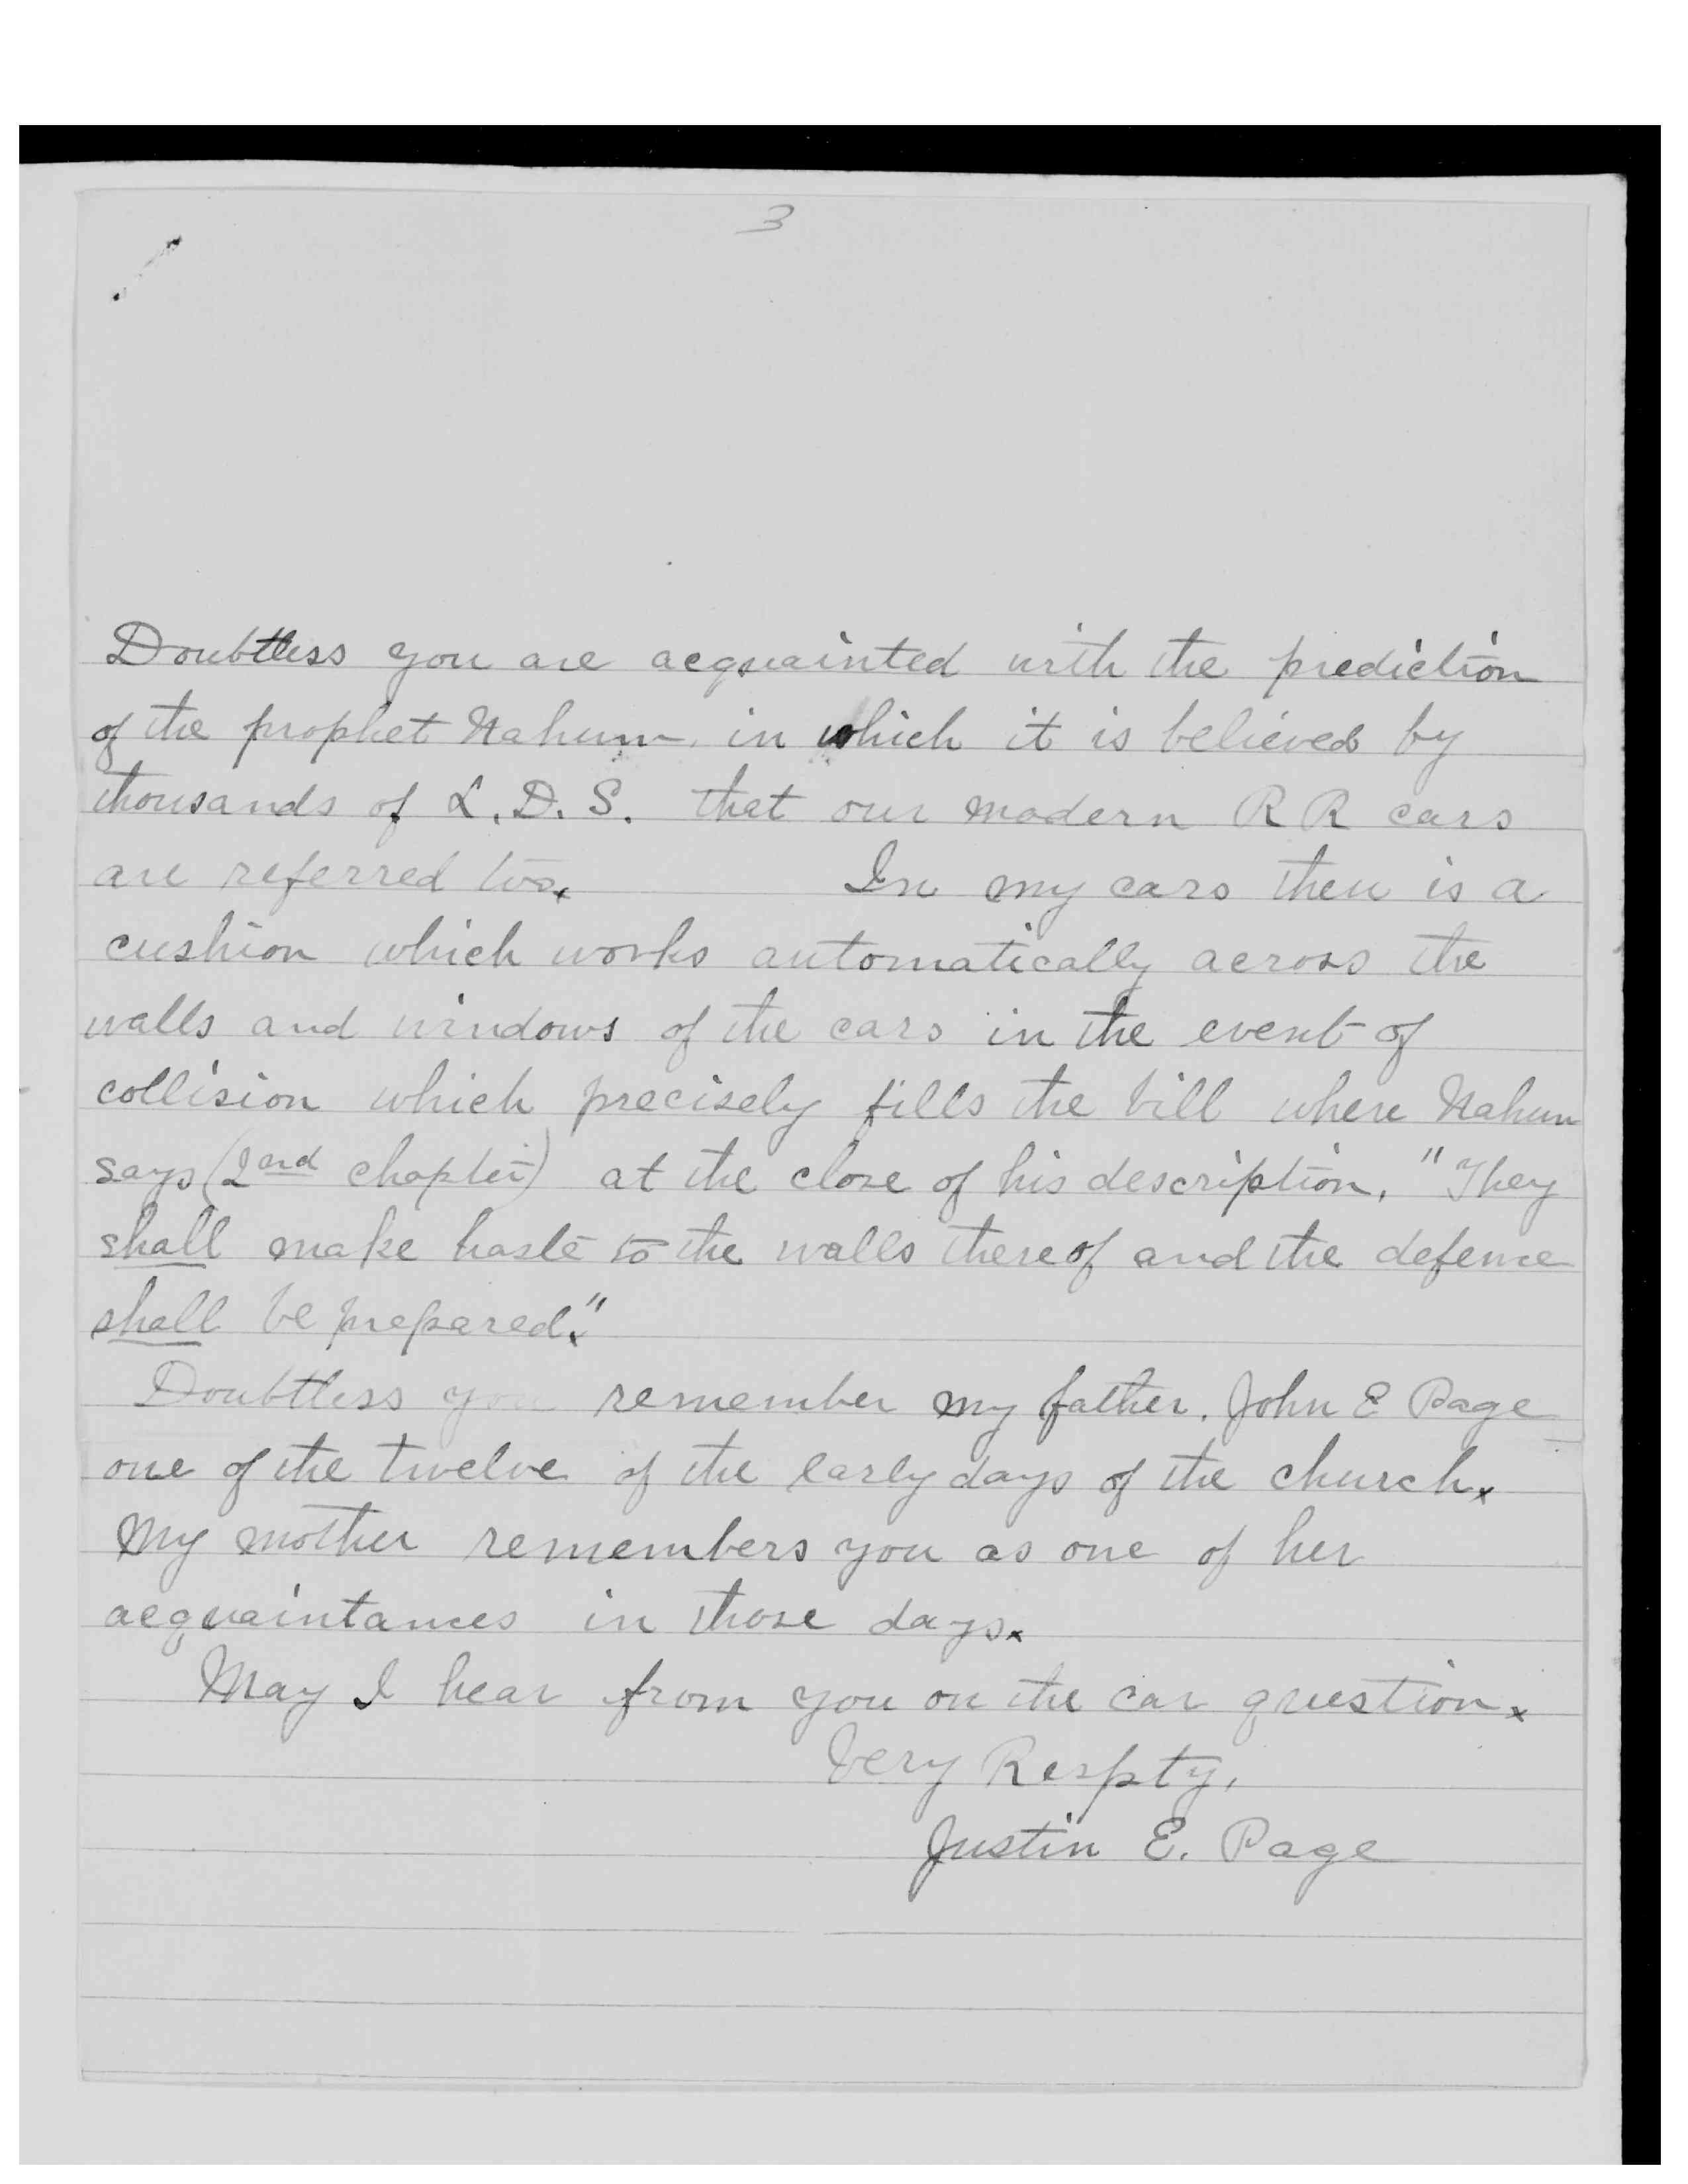 3
Doubtless you are acquainted with the prediction
of the prophet Nahum, in which it is believed by
thousands of L.D.S. that our modern RR cars
are referred too. In my cars there is a
cushion which works automatically across the
walls and windows of the cars in the event of
collision which precisely fills the bill where Nahum
says (2nd chapter) at the close of his description, "They
shall make haste to the walls thereof and the defence
shall be prepared."
Doubtless you remember my father. John E Page
one of the twelve of the early days of the church.
My mother remembers you as one of her
acquaintances in those days.
May I hear from you on the car question.
Very Respty,
Justin E. Page